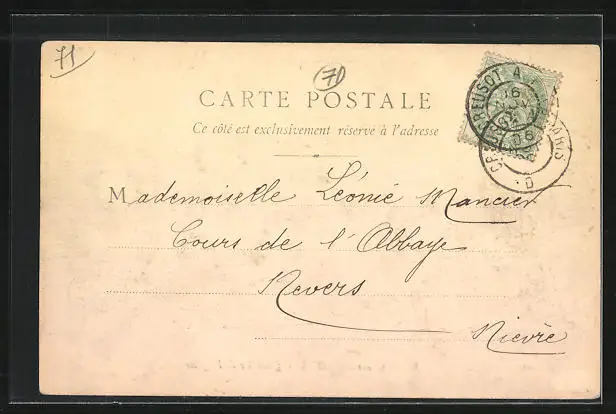 71
71
CARTE POSTALE
Ce côté est exclusivement réservé à l'adresse
Mademoiselle Léonie Mancier
Cours de l'Abbaye
Nevers
Nièvre